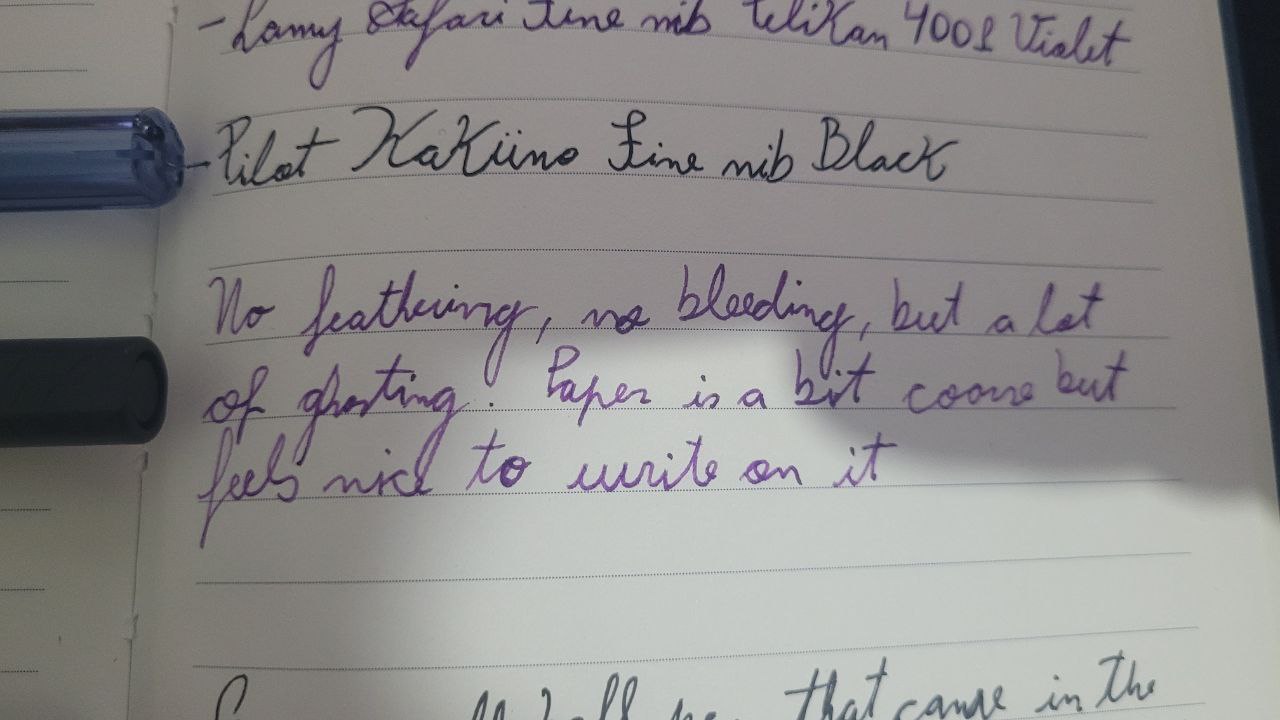 - Lamy Safari Fine nib Pelikan 4001 Violet
- Pilot KaKüno Fine nib Black
No feathering, no bleeding, but a lot
of ghosting! Paper is a bit coarse but
feels nice to write on it
that came in the